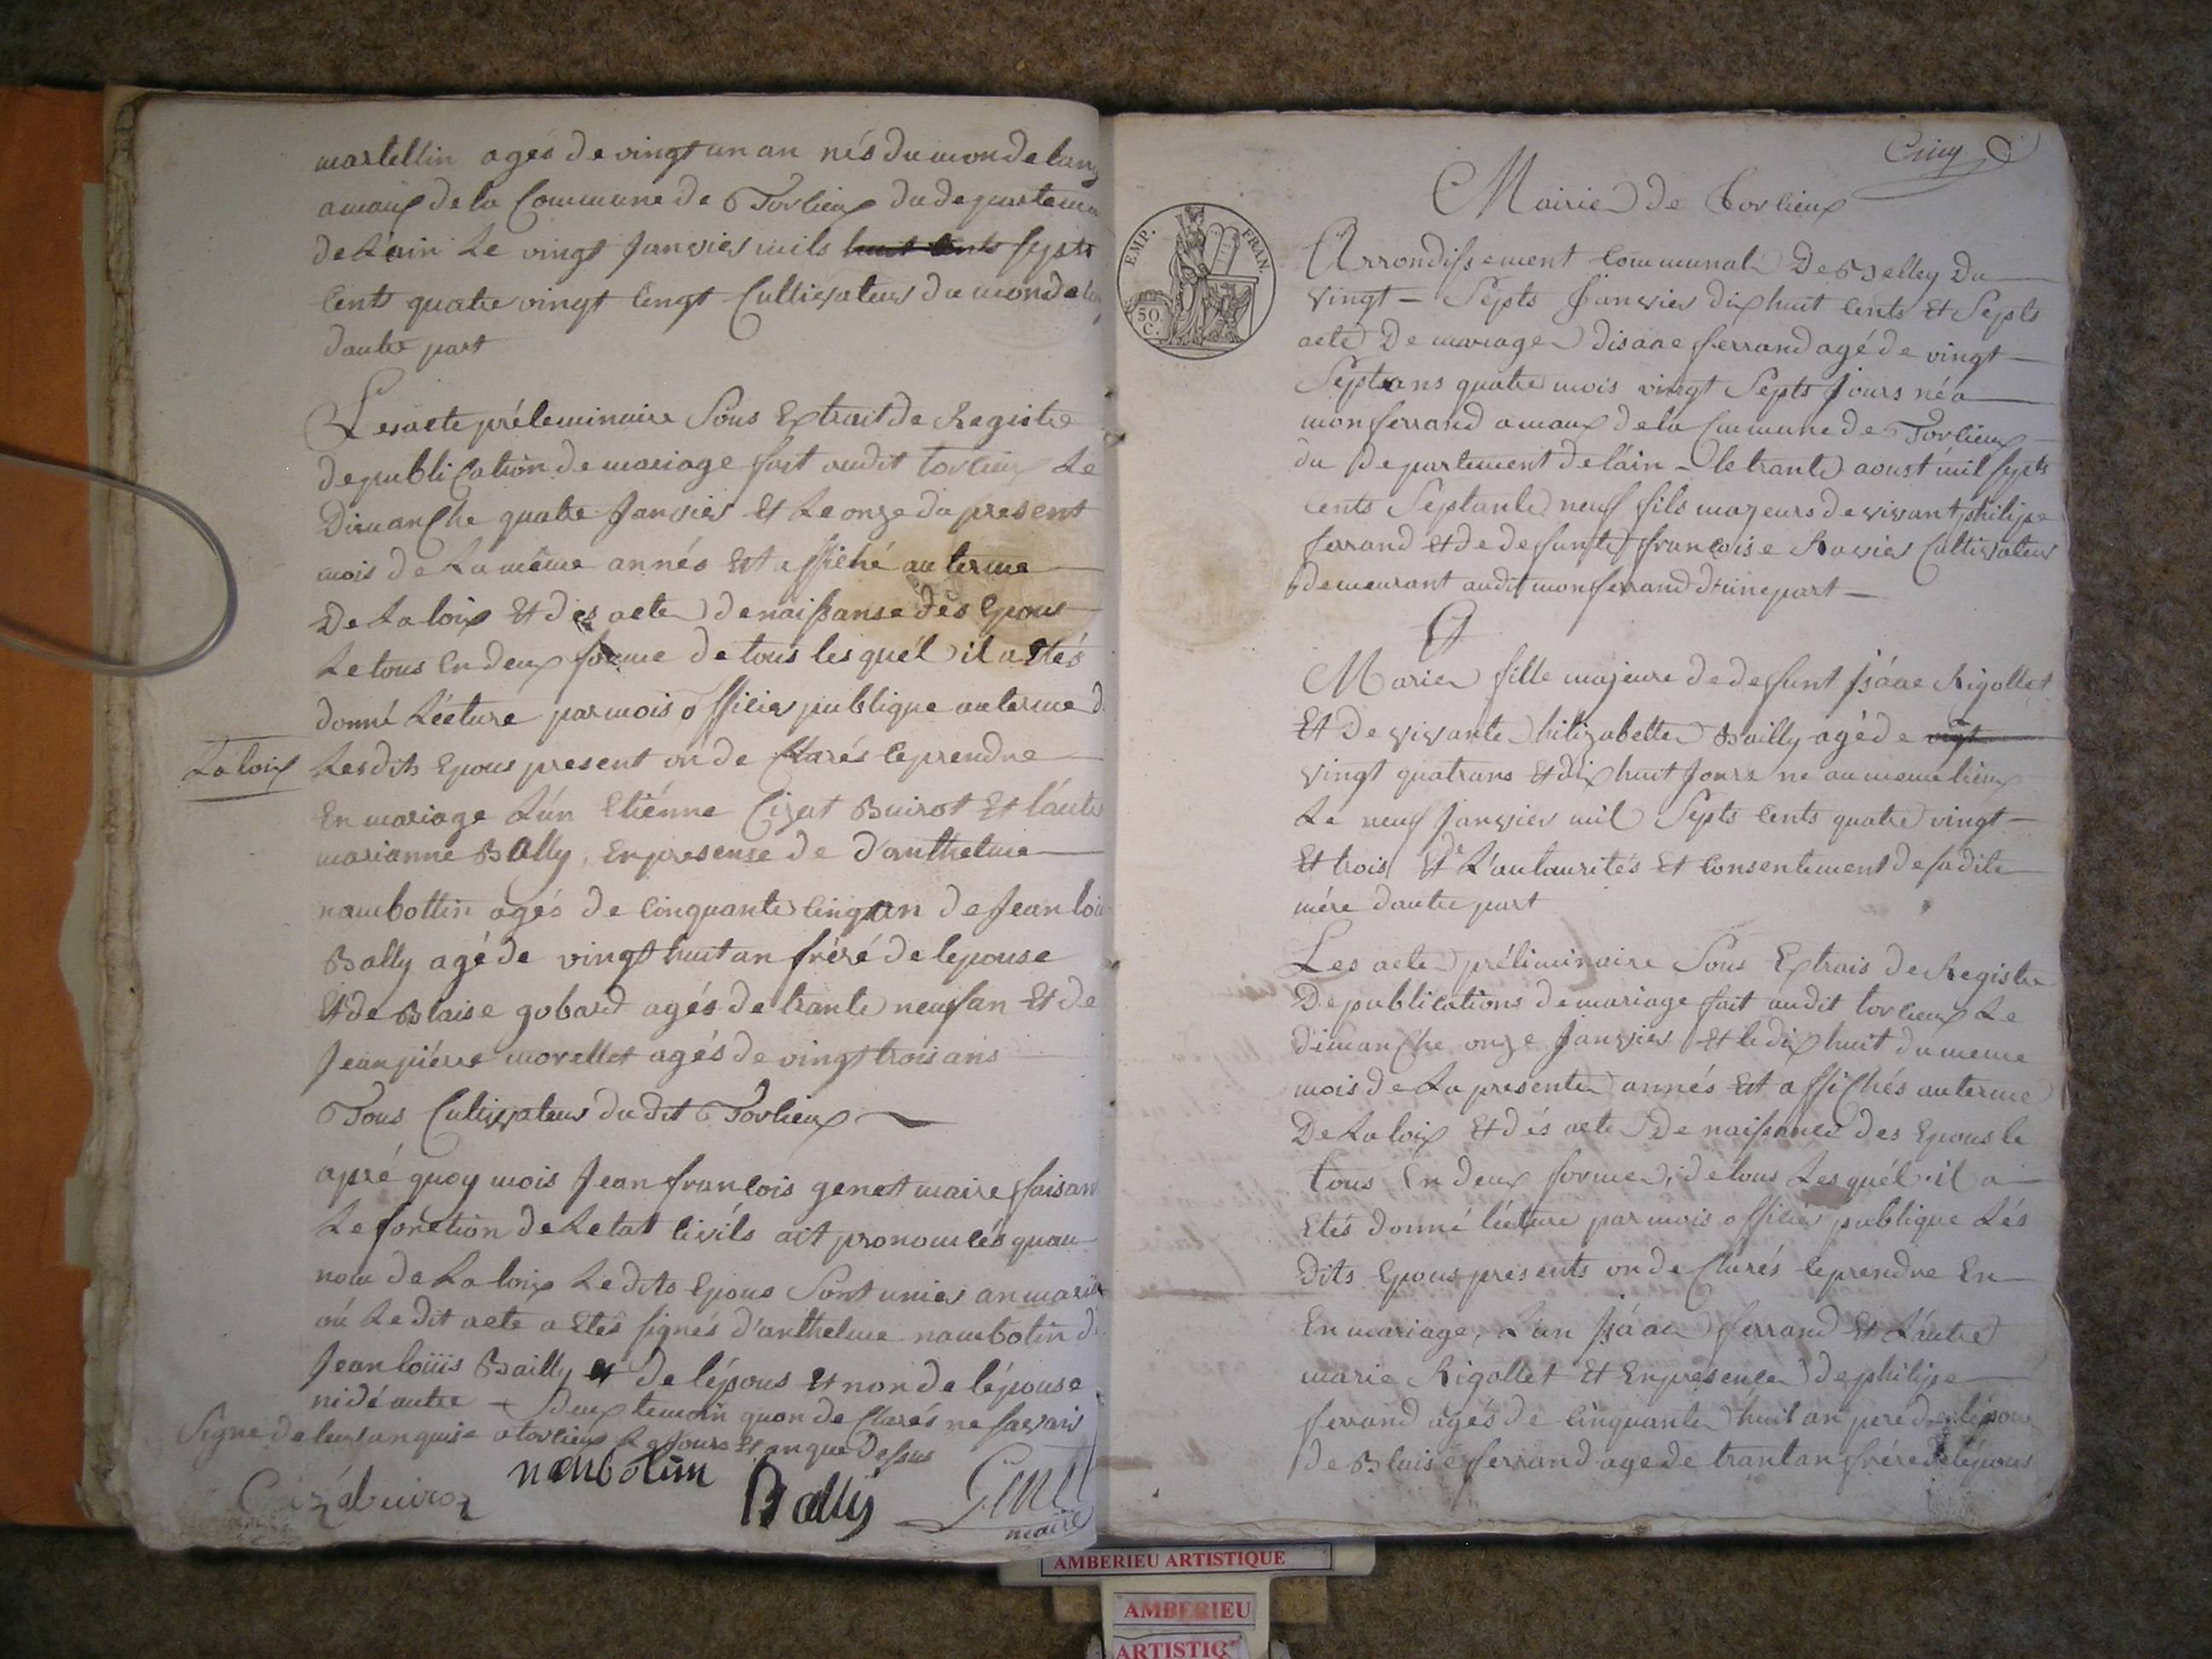 martellin agés de vingt un an nés du monde lang
amaux de la Commune de Torlieux du departemen
de L'ain Le vingt Janvier mils huit cents septs
Cents quatre vingt Cingt Cultivateur du monde lang
dautre part
Les acte préleminaire Sous Extrait de Registre
de publication de mariage fait audit torlieux Le
Dimanche quatre Janvier Et Le onze du present
mois de La même annés Et affiché au terme
De La loix Et des acte de naissanse des Epous
Le tous En deux forme de tous les quél il a Etés
donné Lécture par mois officier publique au terme d
La loix
Lesdits Epous present on de Clarés ce prendre
En mariage L'ún Etiénne Cizat Buirot Et láutre
marianne Bally, En presense de d'anthelme
nambottin agés de Cinquante Cingt an de Jean loui
Bally agé de vingt huit an fréré de lepouse
Et de Blaise gobard agés de trante neuf an Et de
Jean piérre morellet agés de vingt trois ans
Tous Cultivateur du dit Torlieux
apré quoy mois Jean francois genet maire faisan
Le fonction de Letat Civils ait pronomcés quau
nom de La loix Le dits Epous Sont unies an mariage
où Le dit acte a Etés signés d'anthelme nambotin d
Jean loüis Bailly et de lépous Et non de lépouse
ni dé autre deux temoin quon de Clarés ne savoir
Signe de leur anquise a torlieux Le Jours Et an que dessus
Cizábuiroz nanbotim Bally Genet
maire
Cinq
Mairie de Torlieux
EMP. FRAN.
50 C.
Arrondissement Communal De Belley Du
vingt - Septs Janvier dix huit Cents Et Septs
acte De mariage disaac ferrand agé de vingt
Septe ans quatre mois vingt Septs Jours né a
monferrand amaux de la Commune de Torlieux
du Departement de láin - le trante aoust mil septs
Cents Septante neuf fils majeurs de vivant philipe
ferrand Et de defunte francoise Ravier Cultivateur
demeurant audit monferrand dúne part
Et
Marie fille majeure de defunt Isáac Rigollet
Et de vivante hilizabette Bailly agé de vigt
vingt quatrans Et dix huit Jours ne au meme lieux
Le neuf Janvier mil Septs Cents quatre vingt
Et trois Et de L'autaurités Et Consentement de sadite
mére dautre part
Les acte préliminaire Sous Extrais de Registre
De publications de mariage fait audit torlieux Le
dimanche onze Janvier Et le dix huit du meme
mois de La presente annés Et affichés au terme
De La loix Et dés acte De naissance des Epous le
tous En deux forme, de tous Les quél il a
Etés donné lécture par mois officier publique Lés
dits Epous presents on de Clarés ce prendre En
En mariage, L'un Isáac ferrand Et L'autre
marie Rigollet Et En presence de philipe
ferrand agés de Cinquante huit an pere de lépous
de Blaise ferrand age de trantan frére de lépous
AMBERIEU ARTISTIQUE
AMBERIEU
ARTISTIQ